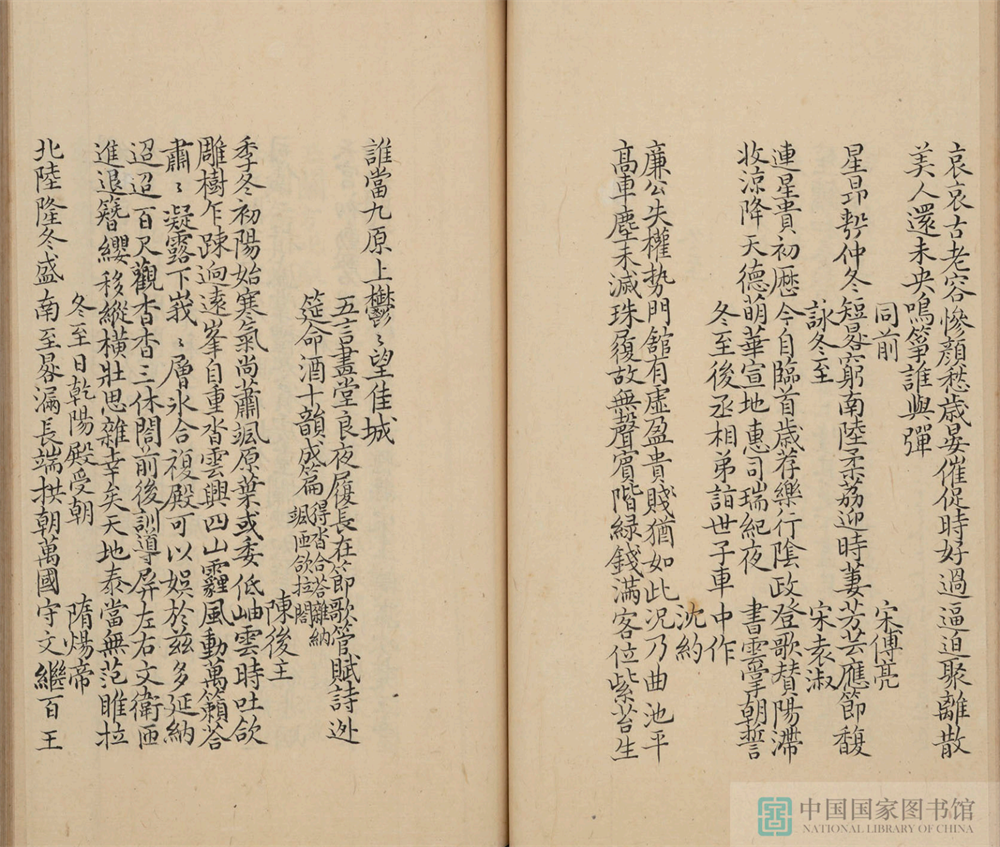 哀哀古老容慘顏愁歲晏催促時好過逼迫聚離散
美人還未央鳴箏誰與彈
同前
宋傅亮
星昴𣂪仲冬短晷窮南陸柔荔迎時萋芳芸應節馥
詠冬至
宋袁淑
連星貴初曆今自臨首歲荐樂行陰政登歌賛陽滯
收涼降天德萌華宣地惠司瑞紀夜書雲掌朝誓
冬至後丞相弟詣世子車中作
沈約
廉公失權勢門舘有虛盈貴賤猶如此況乃曲池平
高車塵未滅珠履故無聲賓階緑錢滿客位紫苔生
誰當九原上鬱〻望佳城
五言畫堂良夜履長在節歌管賦詩迾
筵命酒十韻成篇
得沓合荅雜納
颯匝欲拉閤
陳後主
季冬初陽始寒氣尚蕭颯原葉或委低岫雲時吐欱
雕樹乍踈迥遠峯自重沓雲興四山霾風動萬籟荅
肅〻凝露下峩〻層氷合複殿可以娛於兹多延納
迢迢百尺觀杳杳三休閤前後訓導屏左右文衛匝
進退簪纓移縱橫壯思雜幸矣天地泰當無范睢拉
冬至日乾陽殿受朝
隋煬帝
北陸隆冬盛南至晷漏長端拱朝萬國守文繼百王
中国国家图书馆
NATIONAL LIBRARY OF CHINA